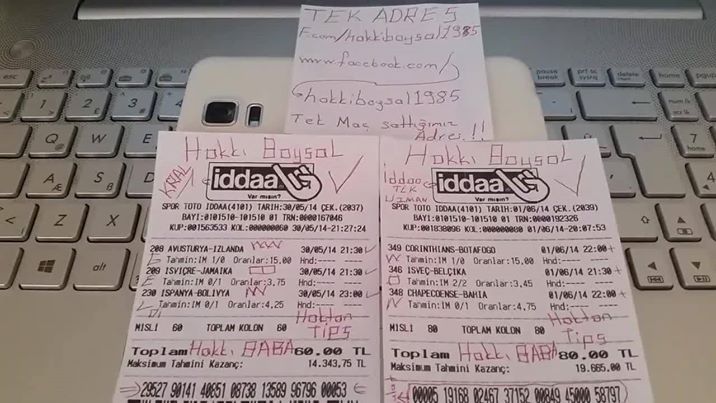 TEK ADRES
F.com/Hakkiboysal1985
www.facebook.com/
hakkiboysal1985
Tek Maç sattığımız
Adres!!
Hakkı Boysal
KRAL
iddaa
Var mısın?
SPOR TOTO IDDAA(4101) TARIH:30/05/14 ÇEK.(2037)
BAYI:0101510-101510 01 TRN:0000167046
KUP:001563533 KOL:000000060 30/05/14-21:27:24
208 AVUSTURYA-IZLANDA 30/05/14 21:30
Tahmin:IM 1/0 Oranlar:15,00 Hnd:---- ----
209 ISVIÇRE-JAMAIKA 30/05/14 21:30
Tahmin:IM 0/1 Oranlar:3,75 Hnd:---- ----
230 ISPANYA-BOLIVYA 30/05/14 23:00
Tahmin:IM 0/1 Oranlar:4,25 Hnd:---- ----
Hakton
Tips
MISLI 60 TOPLAM KOLON 60
Toplam Hakkı BABA 60.00 TL
Maksimum Tahmini Kazanç: 14.343,75 TL
29527 90141 40851 08738 13589 96796 00053
Hakkı Boysal
iddaa
TEK
UZMAN
iddaa
Var mısın?
SPOR TOTO IDDAA(4101) TARIH:01/06/14 ÇEK.(2039)
BAYI:0101510-101510 01 TRN:0000192326
KUP:001838096 KOL:000000080 01/06/14-20:07:53
349 CORINTHIANS-BOTAFOGO 01/06/14 22:00
Tahmin:IM 1/0 Oranlar:15,00 Hnd:---- ----
346 ISVEÇ-BELÇIKA 01/06/14 21:30
Tahmin:IM 2/2 Oranlar:3,45 Hnd:---- ----
348 CHAPECOENSE-BAHIA 01/06/14 22:00
Tahmin:IM 0/1 Oranlar:4,75 Hnd:---- ----
Hakton
Tips
MISLI 80 TOPLAM KOLON 80
Toplam Hakkı BABA 80.00 TL
Maksimum Tahmini Kazanç: 19.665,00 TL
00005 19168 02467 37152 00849 45000 58797